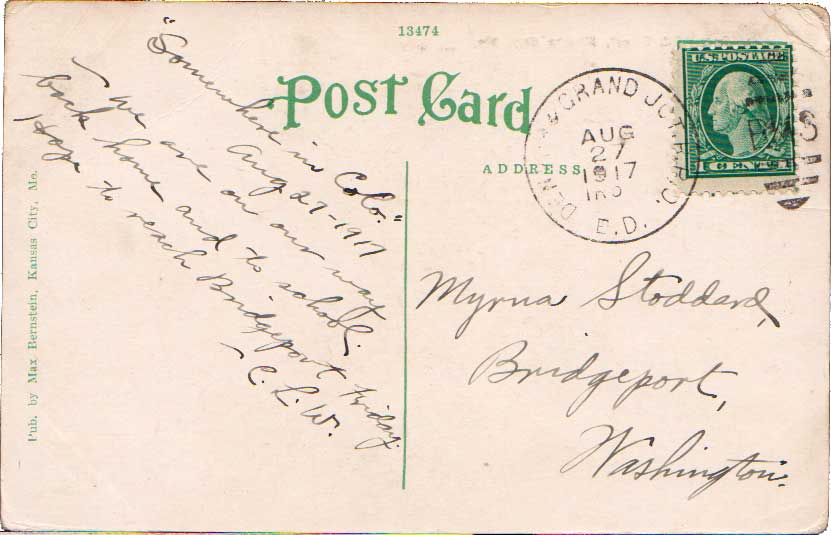 13474
POST CARD
ADDRESS
"Somewhere in Colo."
Aug 27-1917
We are on our way
back home and to school.
Hope to reach Bridgeport Friday.
-C. L. W.
Pub. by Max Bernstein, Kansas City, Mo.
DEN. GRAND JCT. R.P.O.
AUG
27
1917
E.D.
U.S. POSTAGE
1 CENT 1
Myrna Stoddard,
Bridgeport,
Washington.